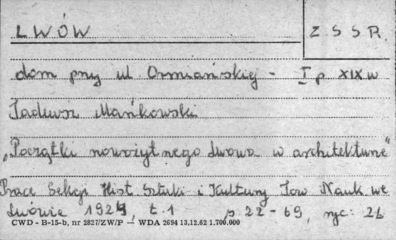 LWÓW
ZSSR.
dom przy ul Ormiańskiej - I p XIX w
Tadeusz Mańkowski
„Początki nowożytnego Lwowa w architekturze"
Prace Sekcji Hist Sztuki i Kultury Tow Nauk we
Lwowie 1924, t. 1 p. 22-69, ryc: 26
CWD - B-15-b, nr 2827/ZW/P — WDA 2694 13.12.62 1.700.000